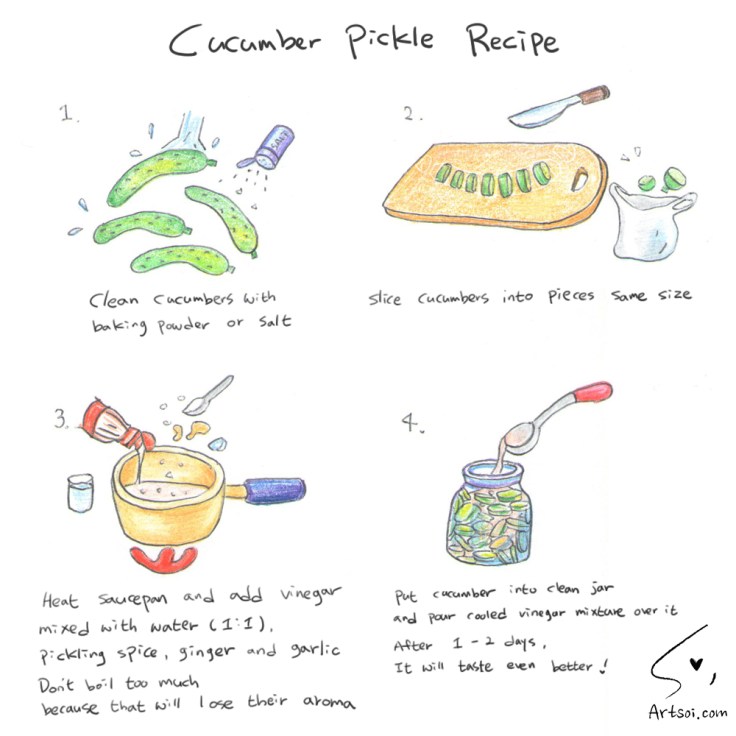 Cucumber Pickle Recipe
1.
SALT
Clean cucumbers with
baking powder or salt
2.
slice cucumbers into pieces same size
3.
Heat saucepan and add vinegar
mixed with water (1:1),
pickling spice, ginger and garlic
Don't boil too much
because that will lose their aroma
4.
Put cucumber into clean jar
and pour cooled vinegar mixture over it
After 1-2 days,
It will taste even better!
Artsoi.com